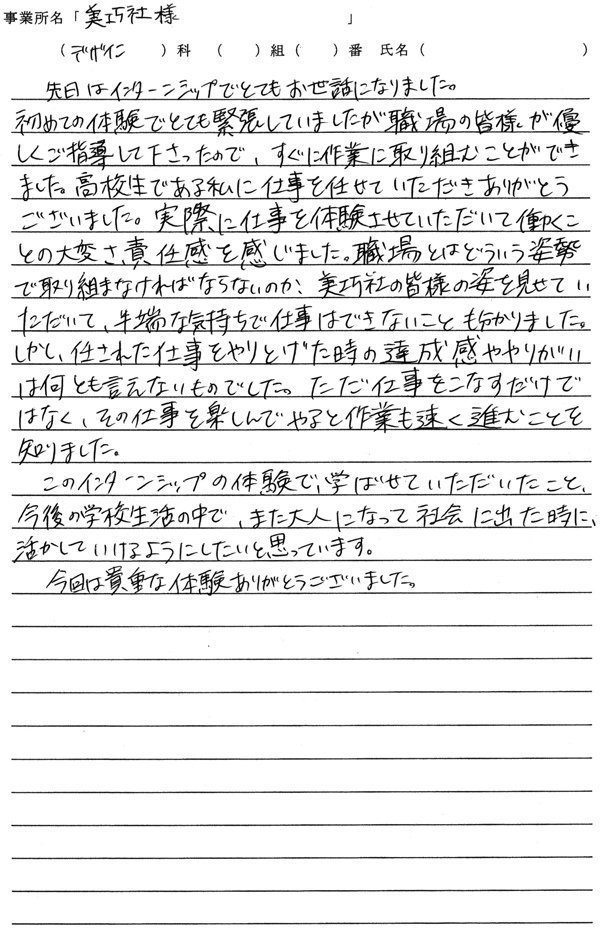 事業所名「美巧社様 」
(デザイン )科 ( )組( )番 氏名( )
先日はインターンシップでとてもお世話になりました。
初めての体験でとても緊張していましたが職場の皆様が優
しくご指導して下さったので、すぐに作業に取り組むことができ
ました。高校生である私に仕事を任せていただきありがとう
ございました。実際に仕事を体験させていただいて働くこ
との大変さ、責任感を感じました。職場とはどういう姿勢
で取り組まなければならないのか、美巧社の皆様の姿を見せてい
ただいて、半端な気持ちで仕事はできないことも分かりました。
しかし、任された仕事をやりとげた時の達成感ややりがい
は何とも言えないものでした。ただ仕事をこなすだけで
はなく、その仕事を楽しんでやると作業も速く進むことを
知りました。
このインターンシップの体験で、学ばせていただいたこと、
今後の学校生活の中で、また大人になって社会に出た時に、
活かしていけるようにしたいと思っています。
今回は貴重な体験ありがとうございました。